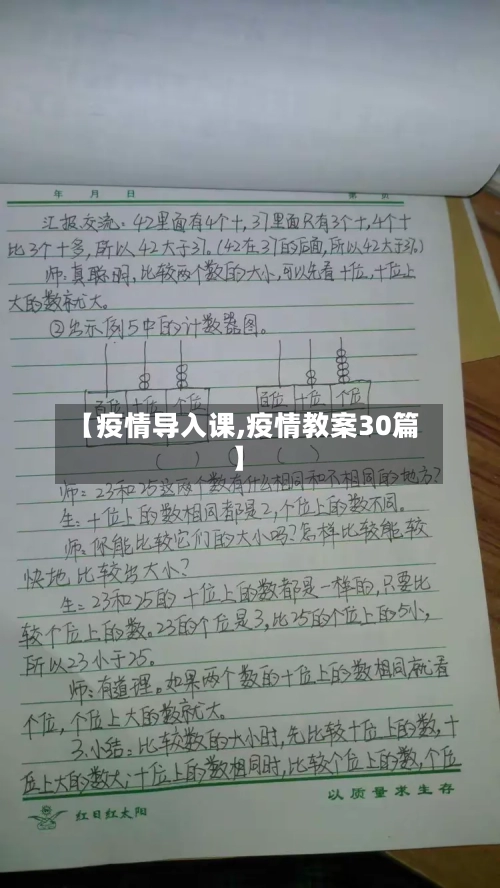 年 月 日 第 页
汇报交流：42里面有4个十，37里面只有3个十，4个十
比3个十多，所以42大于37。（42在37的后面，所以42大于37。）
师：真聪明，比较两个数的大小，可以先看十位，十位上
大的数就大。
②出示例5中的计数器图。
百位 十位 个位 百位 十位 个位
【疫情导入课,疫情教案30篇
】
（ ） （ ）
师：23和25这两个数有什么相同和不相同的地方？
生：十位上的数相同都是2，个位上的数不同。
师：你能比较它们的大小吗？怎样比较能较
快地比较出大小？
生：23和25的十位上的数都是一样的，只要比
较个位上的数。23的个位是3，比25的个位上的5小，
所以23小于25。
师：有道理。如果两个数的十位上的数相同，就看
个位，个位上大的数就大。
3.小结：比较数的大小时，先比较十位上的数，十
位上大的数大；十位上的数相同时，比较个位上的数，个位
以质量求生存
红日红太阳